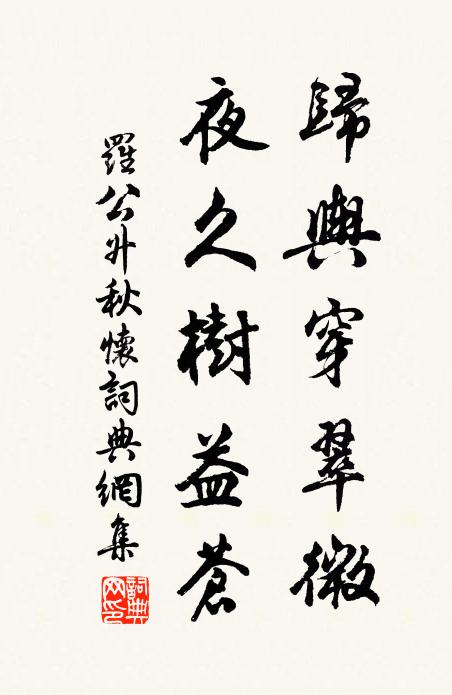 歸輿穿翠微
夜久樹益蒼
羅公升秋懷詞典網集
詞典網印